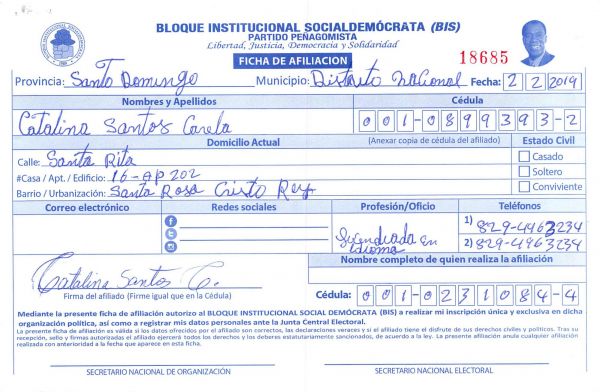 BLOQUE INSTITUCIONAL SOCIALDEMÓCRATA (BIS)
PARTIDO PEÑAGOMISTA
Libertad, Justicia, Democracia y Solidaridad
FICHA DE AFILIACION
18685
Provincia: Santo Domingo Municipio: Distrito Nacional Fecha: 2 2 2019
Nombres y Apellidos Cédula
Catalina Santos 001-0899393-2
Domicilio Actual (Anexar copia de cédula del afiliado) Estado Civil
Calle: Santa Rita Casado
#Casa / Apt. / Edificio: 16-AP 202 Soltero
Barrio / Urbanización: Santa Rosa Cristo Rey Conviviente
Correo electrónico Redes sociales Profesión/Oficio Teléfonos
1) 829-4963234
Licenciada en Idioma 2) 829-4963234
Nombre completo de quien realiza la afiliación
Catalina Santos C.
Firma del afiliado (Firme igual que en la Cédula) Cédula: 001-0231084-4
Mediante la presente ficha de afiliación autorizo al BLOQUE INSTITUCIONAL SOCIAL DEMÓCRATA (BIS) a realizar mi inscripción única y exclusiva en dicha
organización política, así como a registrar mis datos personales ante la Junta Central Electoral.
La presente ficha de afiliación es válida si los datos ofrecidos por el afiliado son correctos, las declaraciones veraces y si el afiliado tiene el disfrute de sus derechos civiles y políticos. Tras su
recepción, sello y firmas autorizadas el afiliado ejercerá todos los derechos y los deberes estatutariamente sancionados, de acuerdo a la ley. La presente afiliación anula cualquier afiliación
realizada con anterioridad a la fecha que aparece en esta ficha.
SECRETARIO NACIONAL DE ORGANIZACIÓN SECRETARIO NACIONAL ELECTORAL